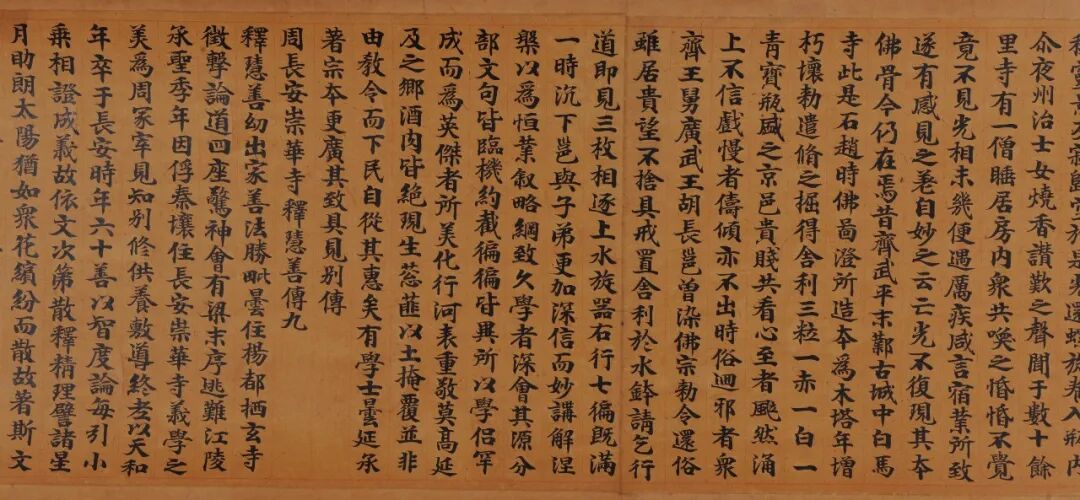 尒夜州治士女燒香讚歎之聲聞于數十餘
里寺有一僧睡居房內眾共喚之惛惛不覺
竟不見光相未幾便遇厲疾咸言宿業所致
遂有感見之差自妙之云亡光不復現其本
佛骨今仍在焉昔齊武平末鄴古城中白馬
寺此是石趙時佛圖澄所造本為木塔年增
朽壞勅遣脩之掘得舍利三粒一赤一白一
青寶瓶盛之京邑貴賤共看心至者颷然涌
上不信戲慢者儔傾亦不出時俗迴邪者眾
齊王舅廣武王胡長邕曾染佛宗勅令還俗
雖居貴望不捨具戒置舍利於水鉢請乞行
道即見三枚相逐上水旋器右行七徧既滿
一時沉下邕與子弟更加深信而妙講解涅
槃以為恒業叙略綱致久學者深會其源分
部文句皆臨機約截徧徧皆異所以學侶罕
成而為英傑者所美化行河表重敬莫高延
及之鄉酒肉皆絕現生葱韮以土掩覆並非
由教令而下民自從其惠矣有學士曇延承
著宗本更廣其致具見別傳
周長安崇華寺釋慧善傳九
釋慧善幼出家善法勝毗曇住楊都栖玄寺
徵擊論道四座驚神會有梁末序逃難江陵
承聖季年因俘秦壤住長安崇華寺義學之
美為周冢宰見知別修供養敷導終老以天和
年卒于長安時年六十善以智度論每引小
乘相證成義故依文次第散釋精理譬諸星
月助朗太陽猶如眾花繽紛而散故著斯文